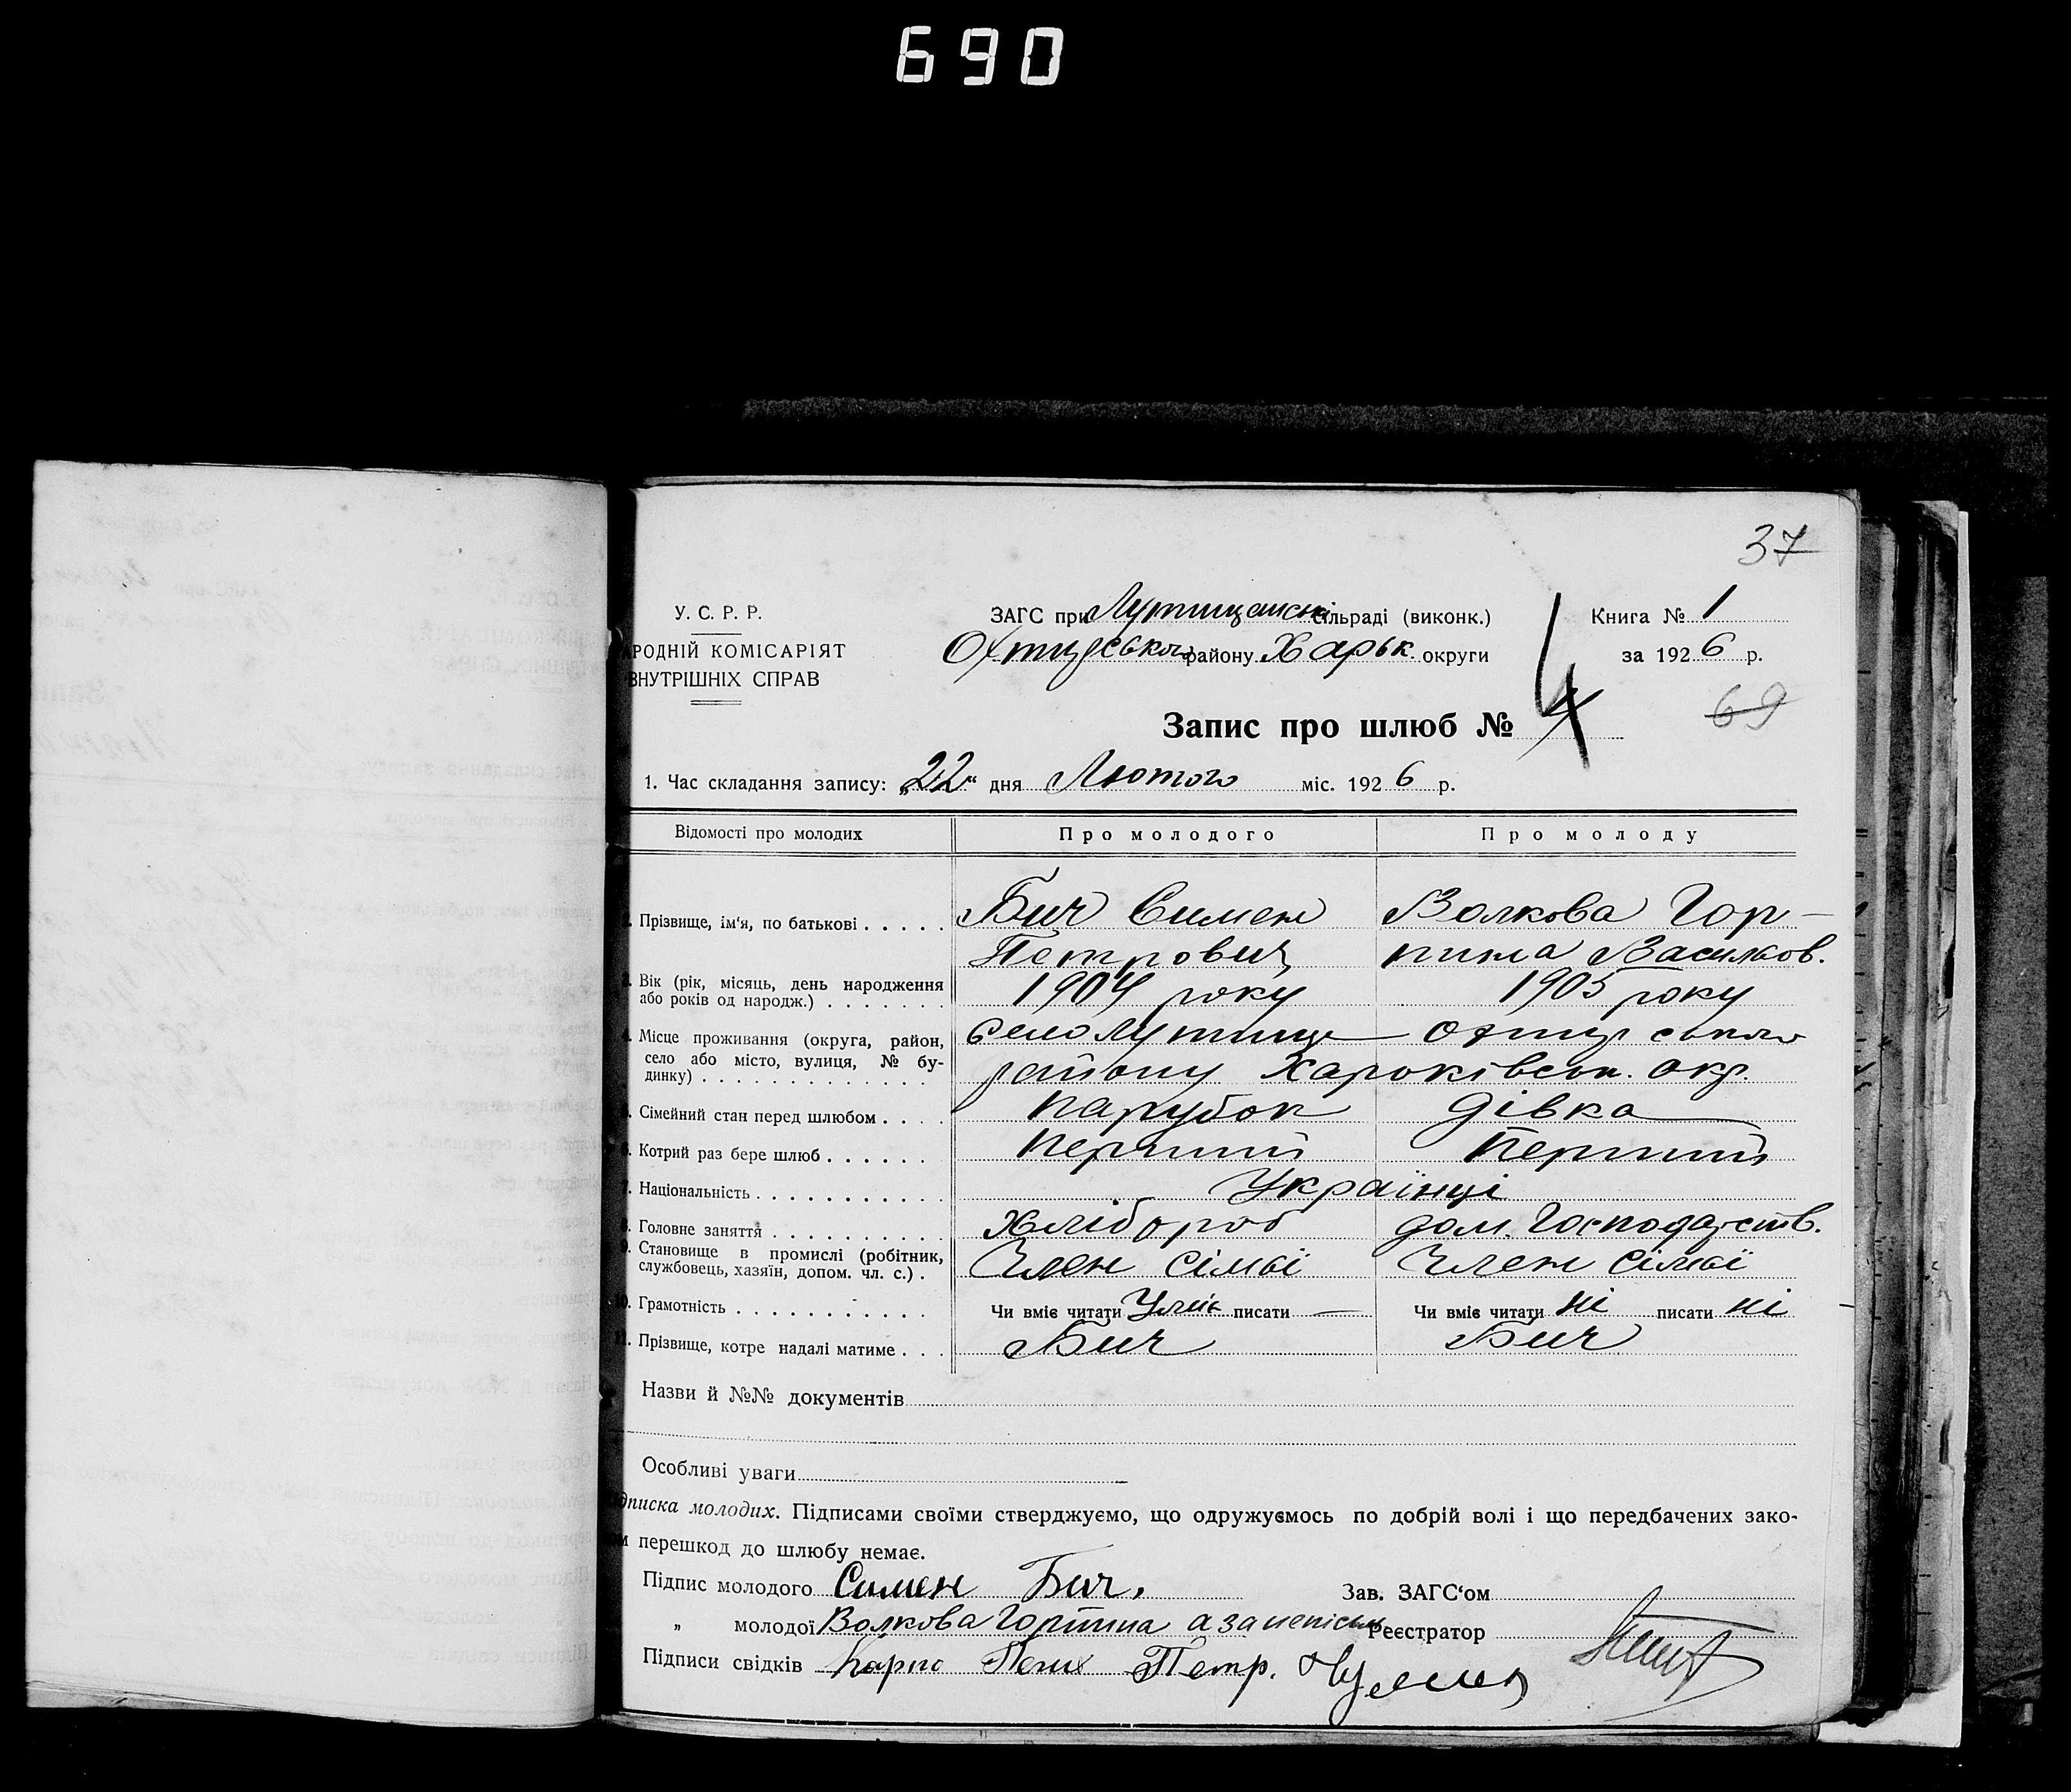 690
37
У. С. Р. Р.
РОДНІЙ КОМІСАРІЯТ
ВНУТРІШНІХ СПРАВ
ЗАГС при Лутищанськ сільраді (виконк.)
Охтирського району Харьк. округи
Книга № 1
за 1926 р.
4
69
Запис про шлюб № 4
1. Час складання запису: „22“ дня Лютого міс. 1926 р.
Відомості про молодих Про молодого Про молоду
Прізвище, ім'я, по батькові . . . . . Бич Симен Волкова Гор-
Петрович пина Васильов.
Вік (рік, місяць, день народження 1904 року 1905 року
або років од народж.) . . . . . . .
4. Місце проживання (округа, район, село Лутище Охтирського
село або місто, вулиця, № бу- району Харьківськ. окр.
динку) . . . . . . . . . . . . . .
Сімейний стан перед шлюбом . . . . парубок дівка
6. Котрий раз бере шлюб . . . . . . перший перший
7. Національність . . . . . . . . . . . Українці
8. Головне заняття . . . . . . . . . . хлібороб дом. господарств.
9. Становище в промислі (робітник, Член сімьї Член сімьї
службовець, хазяїн, допом. чл. с.) .
10. Грамотність . . . . . . . . . . . Чи вміє читати Уміє писати — Чи вміє читати ні писати ні
11. Прізвище, котре надалі матиме . . . Бич Бич
Назви й №№ документів
Особливі уваги
дписка молодих. Підписами своїми стверджуємо, що одружуємось по добрій волі і що передбачених зако-
м перешкод до шлюбу немає.
Підпис молодого Симен Бич. Зав. ЗАГС'ом
„ молодої Волкова Горпина а за неписьм Реєстратор
Підписи свідків Карпо Петр.